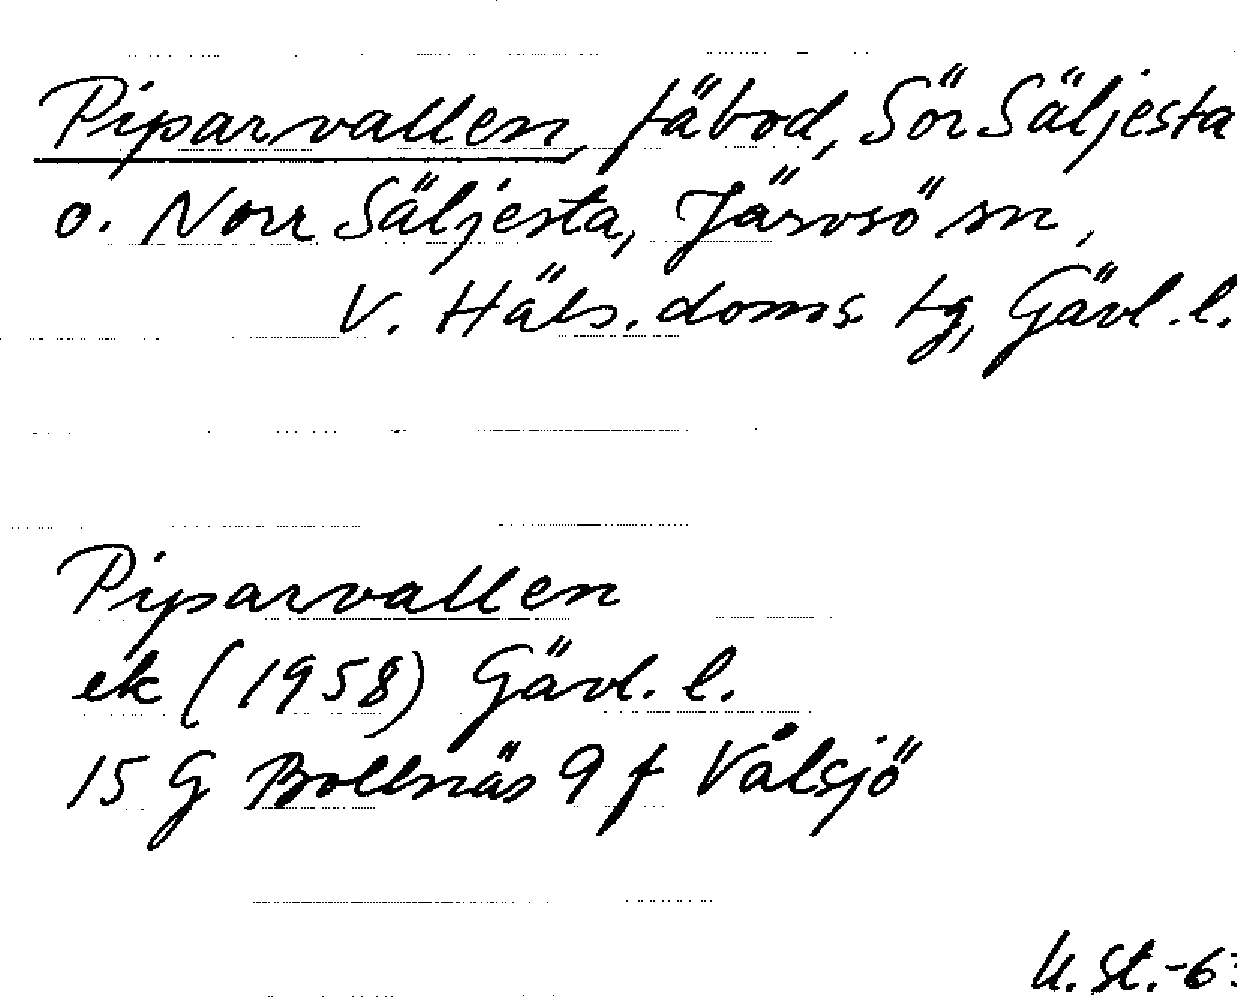 Piparvallen, fäbod, Sör Säljesta
o. Norr Säljesta, Järvsö sn,
V. Häls. doms. tg, Gävl. l.
Piparvallen
ek (1958) Gävl. l.
15 G Bollnäs 9 f Vålsjö
U. St.-63